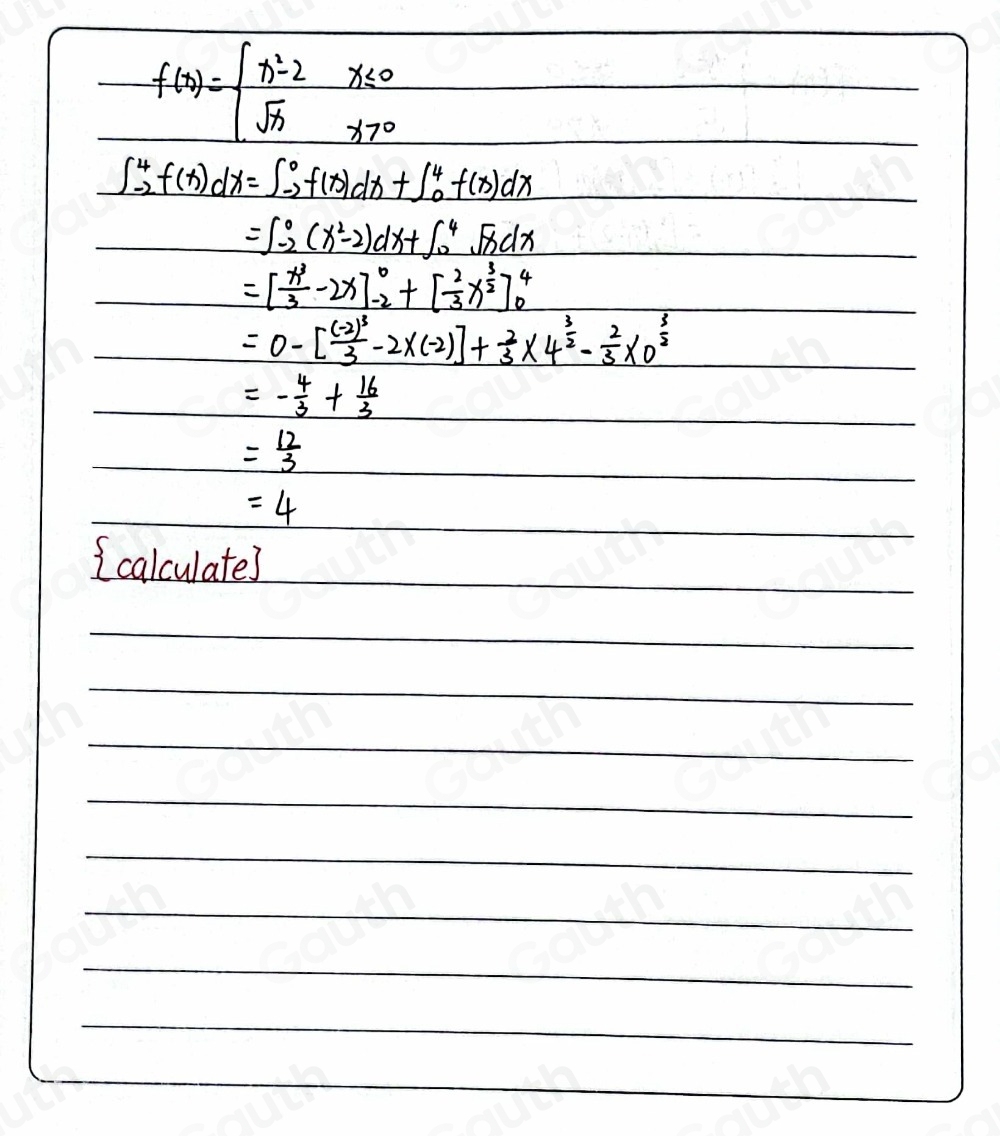 f(x) = { x² - 2  x ≤ 0
√x  x > 0
∫₋₂⁴ f(x) dx = ∫₋₂⁰ f(x) dx + ∫₀⁴ f(x) dx
= ∫₋₂⁰ (x² - 2) dx + ∫₀⁴ √x dx
= [x³/3 - 2x]₋₂⁰ + [2/3 x^(3/2)]₀⁴
= 0 - [(-2)³/3 - 2×(-2)] + 2/3 × 4^(3/2) - 2/3 × 0^(3/2)
= -4/3 + 16/3
= 12/3
= 4
{calculate}